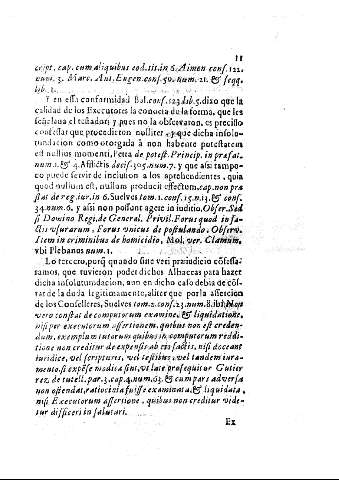 11
cript. cap. cum aliquibus eod. tit. in 6. Aimon conf. 122.
num. 3. Marc. Ant. Eugen. conf. 50. num. 21. & seqq.
lib. 1.
Y en essa conformidad Bal. conf. 123. lib. 5. dizo que la
calidad de los Executores la conocia de la forma, que les
señalaua el testador; y pues no la obseruaron, es preciso
confessar que procedieron nulliter, y que dicha insolu-
tundacion como otorgada à non habente potestatem
est nullios momenti, Peña de potest. Princip. in præfat.
num. 1. & 4. Afflictis decis. 305. num. 7. y assi tampo-
co puede seruir de inclusion a los aprehendientes, quia
quod nullum est, nullum producit effectum, cap. non præ
stat de reg. iur. in 6. Suelves tom. 1. conf. 15. n. 13. & conf.
34. num. 6. y assi non possunt agere in iuditio, Obser. Sed
si Domino Regi, de General. Privil. Forus quod in fa-
ctis vsurarum, Forus vnicus de postulando. Observ.
Item in criminibus de homicidio, Mol. ver. Clamum,
vbi Plebanus num. 1.
Lo tercero, porq̃ quando sine veri præiudicio cõfessa-
ramos, que tuvieron poder dichos Albaceas para hazer
dicha insolutundacion, aun en dicho caso debia de cõs-
tar de la duda legitimamente, aliter que por la assercion
de los Conselleres, Suelves tom. 2. conf. 23. num. 8. ibi Non
vero constat de computorum examine, & liquidatione,
nisi per executorum assertionem, quibus non est creden-
dum, exemplum tutorum quibus in computorum reddi-
tione non creditur de expensis ab eis factis, nisi doceant
iuridice, vel scripturis, vel testibus, vel tandem iura-
mento, si expẽse modica sint, vt late prosequitur Gutier
rez de tutell. par. 3. cap. 4. num. 63. & cum pars adversa
non ostendat, ratiocinia fuisse examinata, & liquidata,
nisi Executorum assertione, quibus non creditur vide-
tur difficeri in salutari.
Ex